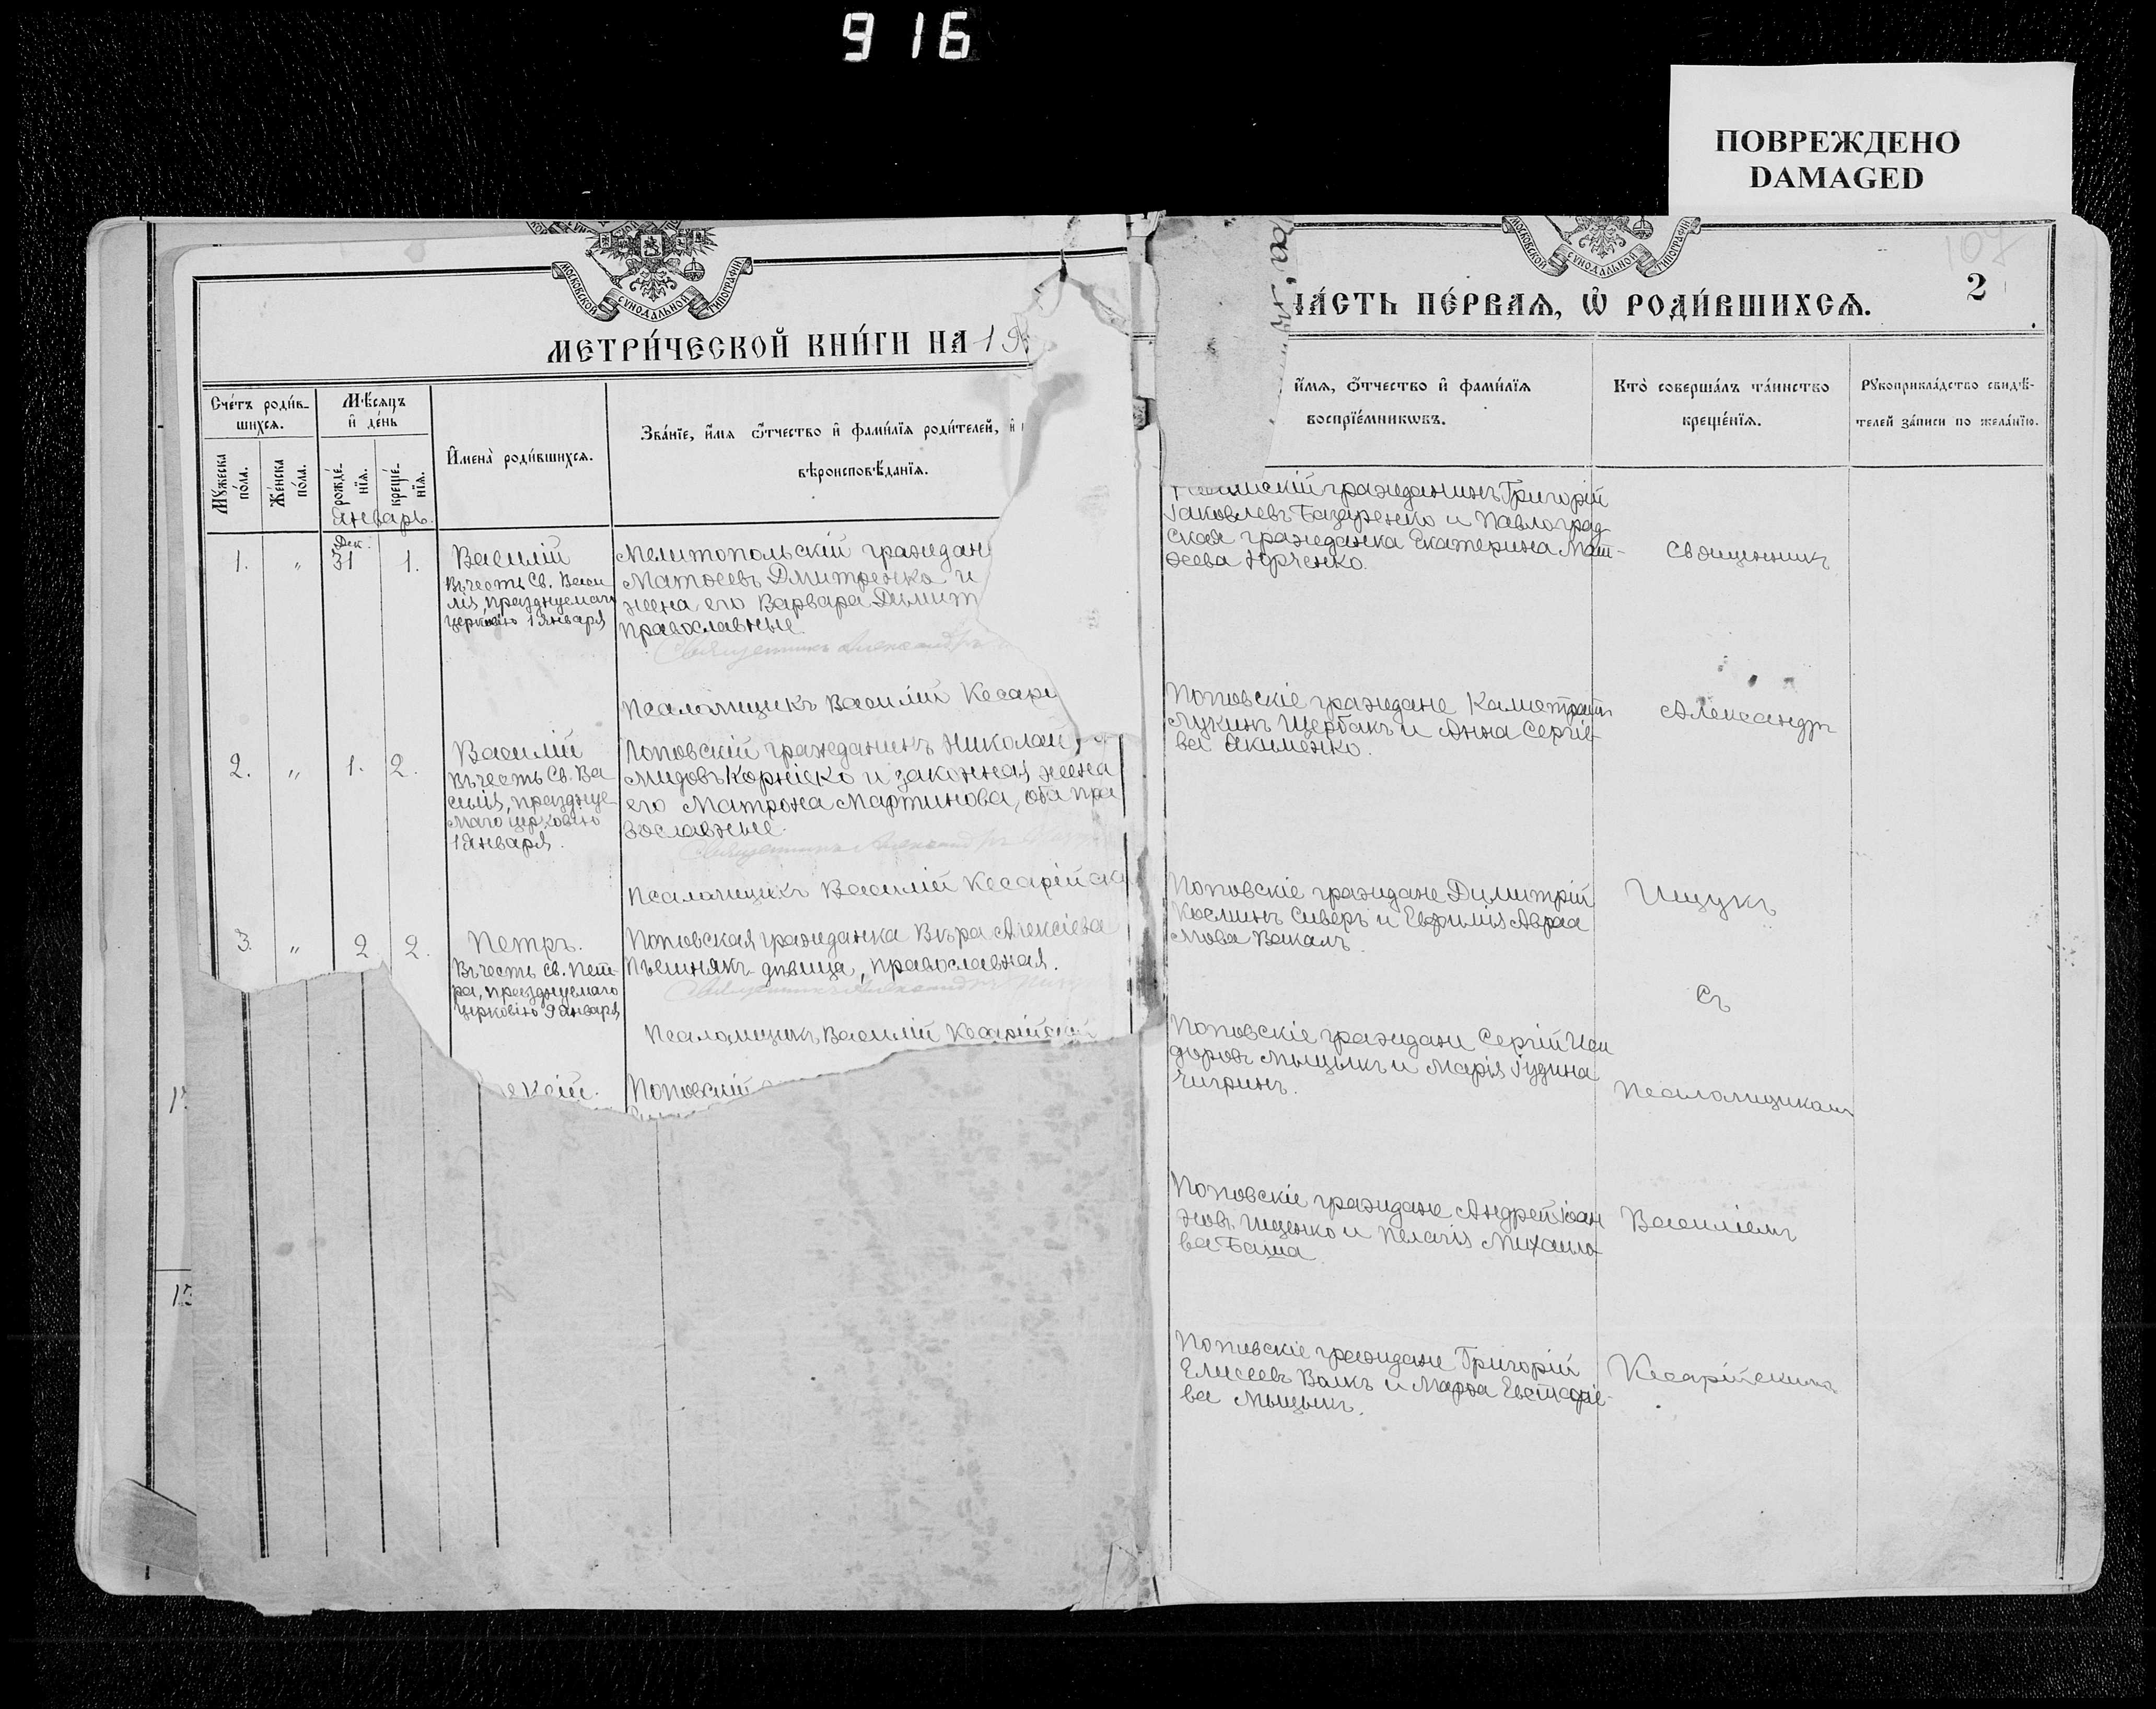 916
ПОВРЕЖДЕНО
DAMAGED
МОСКОВСКОЙ СѴНОДАЛЬНОЙ ТИПОГРАФІИ
МЕТРИ́ЧЕСКОЙ КНИ́ГИ НА 19
Сче́тъ роди́в-
шихся.
Мѣ́сяцъ
и҆ де́нь
Му́жеска по́ла.
Же́нска по́ла.
рожде́-
нїя.
креще́-
нїя.
И҆мена̀ роди́вшихся.
Зва́нїе, и҆́мя ѻ҆́тчество и҆ фами́лїя роди́телей, и҆
вѣроисповѣ́данїя.
Январь.
1.
"
Дек.
31
1.
Василій
Въ честь Св. Васи
лія, празднуемаго
церковію 1 Января
Мелитопольскій граждан
Матѳеевъ Дмитренко и
жена его Варвара Димит
православные.
Священникъ Александръ
Псаломщикъ Василій Кесарі
2.
"
1.
2.
Василій
Въ честь Св. Ва
силія, празднуе-
маго церковію
1 Января.
Поповскій гражданинъ Николай
мидовъ Корніско и законная жена
его Матрона Мартинова, оба пра
вославные.
Священникъ Александръ
Псаломщикъ Василій Кесарійск
3.
"
2
2.
Петръ.
Въ честь св. Пет-
ра, празднуемаго
церковію 9 Января
Поповская гражданка Вѣра Алексіева
Пьешнякъ дѣвица, православная.
Священникъ Александръ
Псаломщикъ Василій Кесарійскій
ексій.
Поповскій
107
2
МОСКОВСКОЙ СѴНОДАЛЬНОЙ ТИПОГРАФІИ
ЧА́СТЬ ПЕ́РВАЯ, Ѡ҆ РОДИ́ВШИХСЯ.
и҆́мя, ѻ҆́тчество и҆ фами́лїя
воспрїе́мникѡвъ.
Кто̀ соверша́лъ та́инство
креще́нїя.
Рꙋкоприкла́дство свидѣ́-
телей за́писи по жела́нїю.
гражданинъ Григорій
Іаковлевъ Базаренко и Павлоград-
ская гражданка Екатерина Мат-
ѳеева Юрченко.
Священникъ
Поповскіе граждане Калистратъ
Лукинъ Щербакъ и Анна Сергіе-
ва Якименко.
Александръ
Поповскіе граждане Димитрій
Косминъ Сиверъ и Евфимія Авраа
мова Вакалъ.
Ищукъ
Съ
Поповскіе граждани Сергій Иси
доровъ Мыцыкъ и Марія Іудина
Чигринъ.
Псаломщикомъ
Поповскіе граждане Андрей Іоан
новъ Ищенко и Пелагія Михаило-
ва Баша.
Василіемъ
Поповскіе граждане Григорій
Елисеевъ Волкъ и Марѳа Евстафіе-
ва Мыцыкъ.
Кесарійскимъ